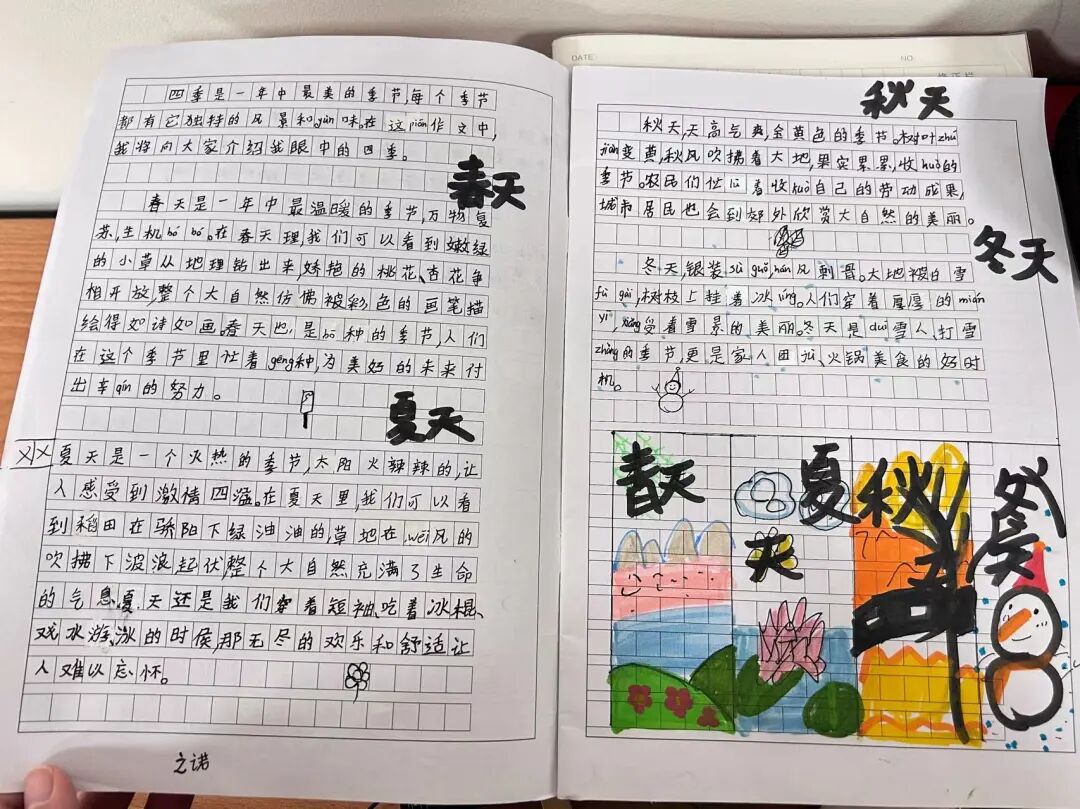 四季是一年中最美的季节,每个季节
都有它独特的风景和yùn味。在这piān作文中,
我将向大家介绍我眼中的四季。
春天
春天是一年中最温暖的季节,万物复
苏,生机bó bó。在春天理,我们可以看到嫩绿
的小草从地理钻出来娇艳的桃花、杏花争
相开放,整个大自然仿佛被彩色的画笔描
绘得如诗如画。春天也是bō种的季节,人们
在这个季节里忙着gēng种,为美好的未来付
出辛qín的努力。
夏天
夏天是一个火热的季节,太阳火辣辣的,让
人感受到激情四溢。在夏天里,我们可以看
到稻田在骄阳下绿油油的,草地在wēi风的
吹拂下波浪起伏,整个大自然充满了生命
的气息。夏天还是我们穿着短袖,吃着冰棍、
戏水游泳的时候,那无尽的欢乐和舒适让
人难以忘怀。
之诺
DATE:
NO
秋天
秋天,天高气爽,金黄色的季节。树叶zhú
jiàn变黄,秋风吹拂着大地,果实累累,收huò的
季节。农民们忙着收huò自己的劳动成果,
城市居民也会到郊外欣赏大自然的美丽。
冬天
冬天,银装sù guǒ,hán风刺骨。大地被白雪
fù gài,树枝上挂着冰líng。人们穿着厚厚的mián
yī,xiǎng受着雪景的美丽。冬天是duī雪人、打雪
zhàng的季节,更是家人团jù、火锅美食的好时
机。
春天
夏
天
秋天
冬天